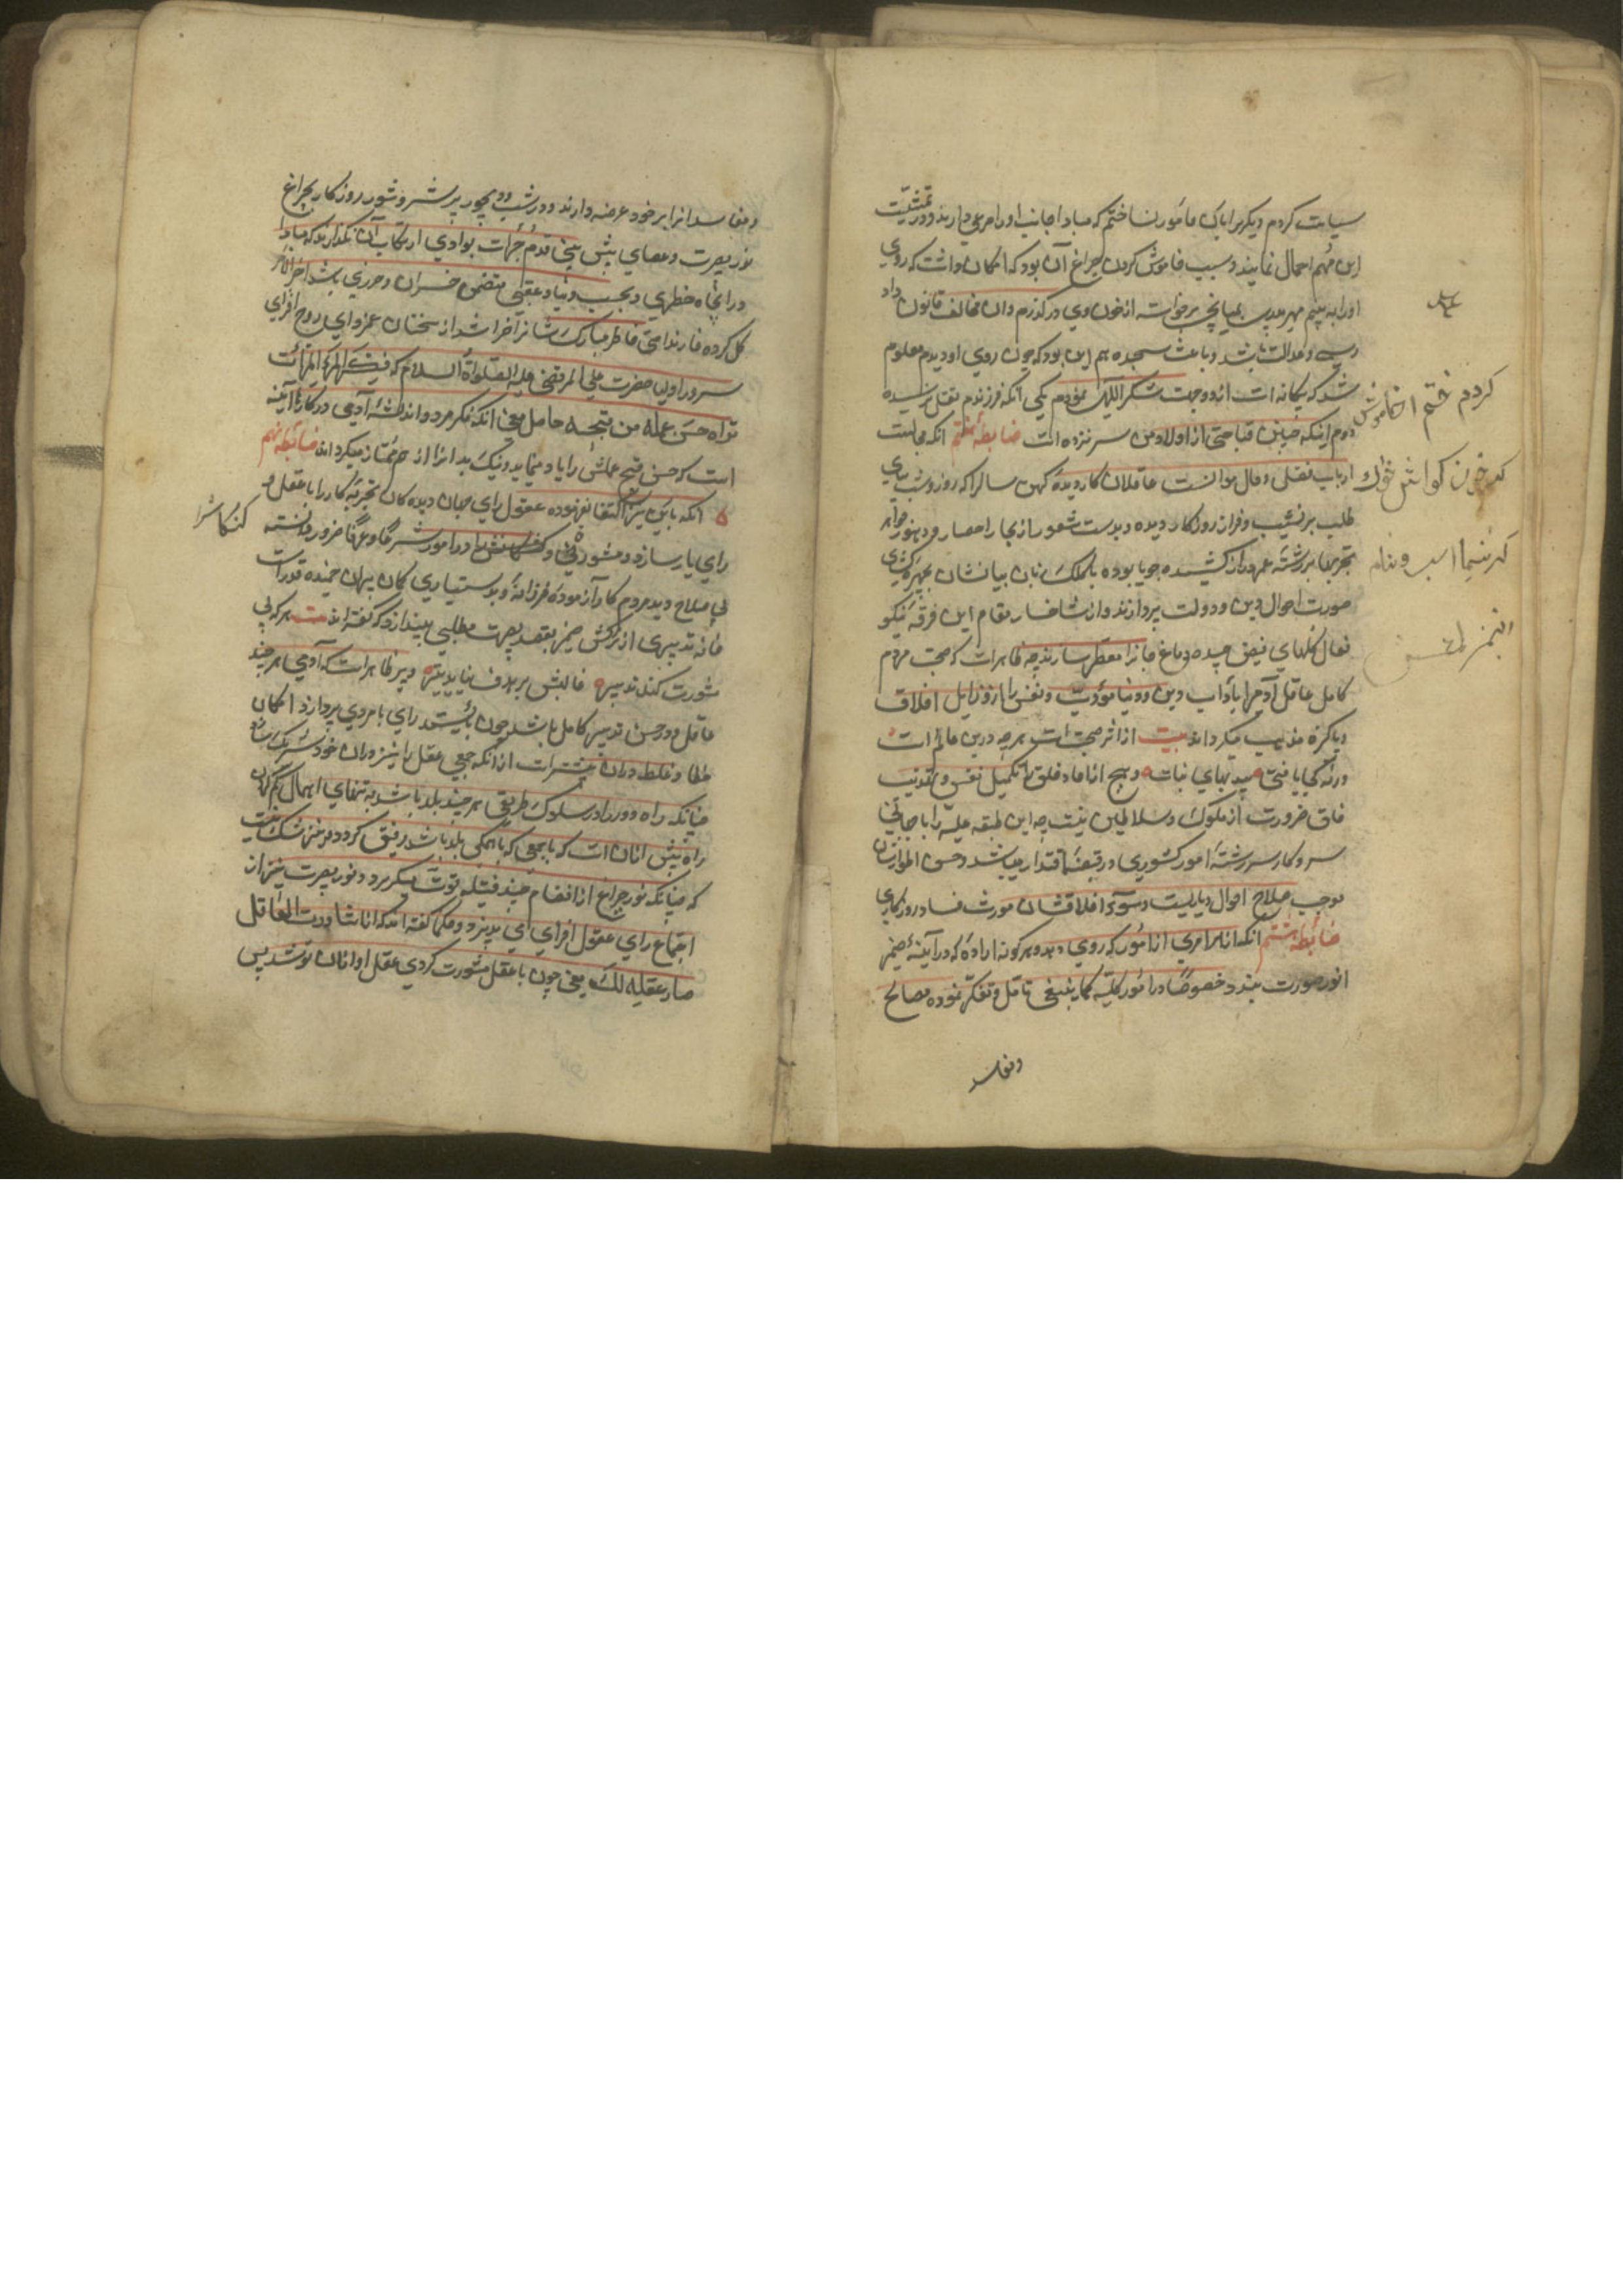 سیاست کردم دیگر برا باک مأمور نساختم که مبادا جانب او را مرعی دارند و در تمشیت
این مهم اهمال نمایند و سبب خاموش کردن چراغ آن بود که امکان داشت که روی
او را به بینم مهر پدری بمیانجی برخواسته از خون وی درگذرم و آن مخالف قانون داد
رسی و عدالت باشد و باعث سجده هم این بود که چون روی او دیدم معلوم
شد که بیگانه است از دو جهت شکر اللهی نمودم یکی آنکه فرزندم بقتل نرسیده
دوم اینکه چنین قباحتی از اولاد من سر نزده است ضابطه هفتم آنکه مجالست
ارباب فضل و کمال موانست عاقلان کار دیده کهن سال را که روز و شب بپای
طلب بر نشیب و فراز روزگار دیده و بدست شعور از بحار اعصار و دهور جواهر
تجربها بر رشته عمر دراز کشیده جویا بوده با کلک زبان بیانشان بچهره کشای
صورت احوال دین و دولت پردازند و از شاخسار مقام این فرقه نیکو
فعال گلهای فیض چیده دماغ جانرا معطر سازند چه ظاهراست که صحبت مردم
کامل عاقل آدم را بآداب دین و دنیا مؤدب و نفس را از رذایل اخلاق
پاکیزه مذهب میگرداند بیت از اثر صحبت است هر چه درین عالم است
ورنه کجا یافتی بید بهای نبات و هیچ از آحاد خلق را تکمیل نفس و تهذیب
خلق ضرورتر از ملوک و سلاطین نیست چه این طبقه علیه را با جهانی
سر و کار سررشته امور کشوری در قبضه اقتدار میباشد و حسن اطوارشان
موجب صلاح احوال دیاریست و سوء اخلاقشان مورث فساد روزگاری
ضابطه هشتم آنکه از هر امری از امور که روی دهد و هر گونه اراده که در آیینه ضمیر
انور صورت بندد خصوصا در امور کلیه کما ینبغی تامل و تفکر نموده مصالح
ومفاسد
کردم ختم
ومفاسد آنرا بر خود عرضه دارند و در شب دیجور پر شر و شور روزگار بچراغ
نور بصیرت و عصای پیش بینی قدم جرات بوادی ارتکاب آن گذارند که مبادا
در انجاه خطری و بحسب دنیا و عقبی متضمن خسران و ضرری باشد آخر الامر
گل کرده خار ندامتی خاطر مبارک شانرا خراشد از سخنان غمزدای روح افزای
سرور اولیا حضرت علی المرتضی علیه الصلوة السلام که فکر المرء مرآت
تراه حسن عمله من قبحه حاصل معنی آنکه فکر مرد و اندیشه آدمی در کارها آیینه
است که حسن و قبح عملش را باو مینماید و نیک و بد آنرا از هم ممتاز میگرداند ضابطه نهم
آنکه باین نیز اکتفا نفرموده عقول رای جهان دیدگان تجربه کار را با عقل و
رای یار سازد و مشورت و کنکاش را در امور شرعا و عرفا ضرور دانسته
کنکاش را
بی صلاح دید مردم کار آزموده فرزانه و بدستیاری کمان پنهان خمیده قد راست
خانه تدبیری از ترکش ضمیر بقصد بصیرت مطلبی بیندازد که گفته اند بیت هر که بی
مشورت کند تدبیر غالبش بر هدف نیاید تیر و پر ظاهراست که آدمی هر چند
عاقل و در حسن تدبیر کامل باشد چون بائیست رای بامروی پردازد امکان
خطا و غلط در آن بیشتر است از آنکه جمعی عقل را نیز در آن خود شریک سازد
چنانکه راه دور را در سلوک طریق هر چند بلد باشد به تنهای احتمال گم کردن
راه بیش از آن است که با جمعی که با همگی بلد باشد رفیق گردد و هر خن شک نیست
که چنانکه نور چراغ از انضمام چند فتیله قوت میگیرد و نور بصیرت نیز از
اجتماع رای عقول افزای می پذیرد و حکما گفته اند که اذا شاورت العاقل
صار عقله لک یعنی چون با عقل مشورت کردی عقل او از آن تو شد پس